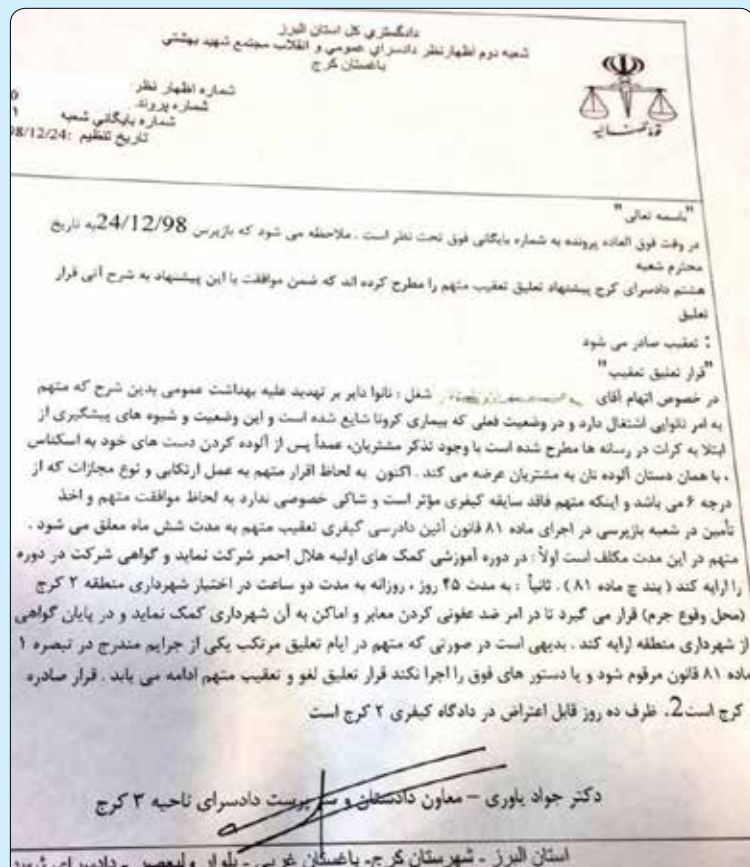 دادگستری کل استان البرز
شعبه دوم اظهارنظر دادسرای عمومی و انقلاب مجتمع شهید بهشتی
باغستان کرج
قوه قضائیه
شماره اظهار نظر:
شماره پرونده:
شماره بایگانی شعبه
تاریخ تنظیم: 98/12/24
"باسمه تعالی"
در وقت فوق العاده پرونده به شماره بایگانی فوق تحت نظر است . ملاحظه می شود که بازپرس 24/12/98به تاریخ
محترم شعبه
هشتم دادسرای کرج پیشنهاد تعلیق تعقیب متهم را مطرح کرده اند که ضمن موافقت با این پیشنهاد به شرح آتی قرار
تعلیق
: تعقیب صادر می شود
"قرار تعلیق تعقیب"
در خصوص اتهام آقای شغل : نانوا دایر بر تهدید علیه بهداشت عمومی بدین شرح که متهم
به امر نانوایی اشتغال دارد و در وضعیت فعلی که بیماری کرونا شایع شده است و این وضعیت و شیوه های پیشگیری از
ابتلا به کرات در رسانه ها مطرح شده است با وجود تذکر مشتریان، عمداً پس از آلوده کردن دست های خود به اسکناس
، با همان دستان آلوده نان به مشتریان عرضه می کند . اکنون به لحاظ اقرار متهم به عمل ارتکابی و نوع مجازات که از
درجه ۶ می باشد و اینکه متهم فاقد سابقه کیفری مؤثر است و شاکی خصوصی ندارد به لحاظ موافقت متهم و اخذ
تأمین در شعبه بازپرسی در اجرای ماده ۸۱ قانون آئین دادرسی کیفری تعقیب متهم به مدت شش ماه معلق می شود .
متهم در این مدت مکلف است اولاً : در دوره آموزشی کمک های اولیه هلال احمر شرکت نماید و گواهی شرکت در دوره
را ارایه کند ( بند چ ماده ۸۱ ) . ثانیاً : به مدت ۴۵ روز ، روزانه به مدت دو ساعت در اختیار شهرداری منطقه ۲ کرج
(محل وقوع جرم) قرار می گیرد تا در امر ضد عفونی کردن معابر و اماکن به آن شهرداری کمک نماید و در پایان گواهی
از شهرداری منطقه ارایه کند . بدیهی است در صورتی که متهم در ایام تعلیق مرتکب یکی از جرایم مندرج در تبصره ۱
ماده ۸۱ قانون مرقوم شود و یا دستور های فوق را اجرا نکند قرار تعلیق لغو و تعقیب متهم ادامه می یابد . قرار صادره
کرج است2. ظرف ده روز قابل اعتراض در دادگاه کیفری ۲ کرج است
دکتر جواد یاوری – معاون دادستان و سرپرست دادسرای ناحیه ۳ کرج
استان البرز - شهرستان کرج- باغستان غربی - بلوار ولیعصر - دادسرای شهید